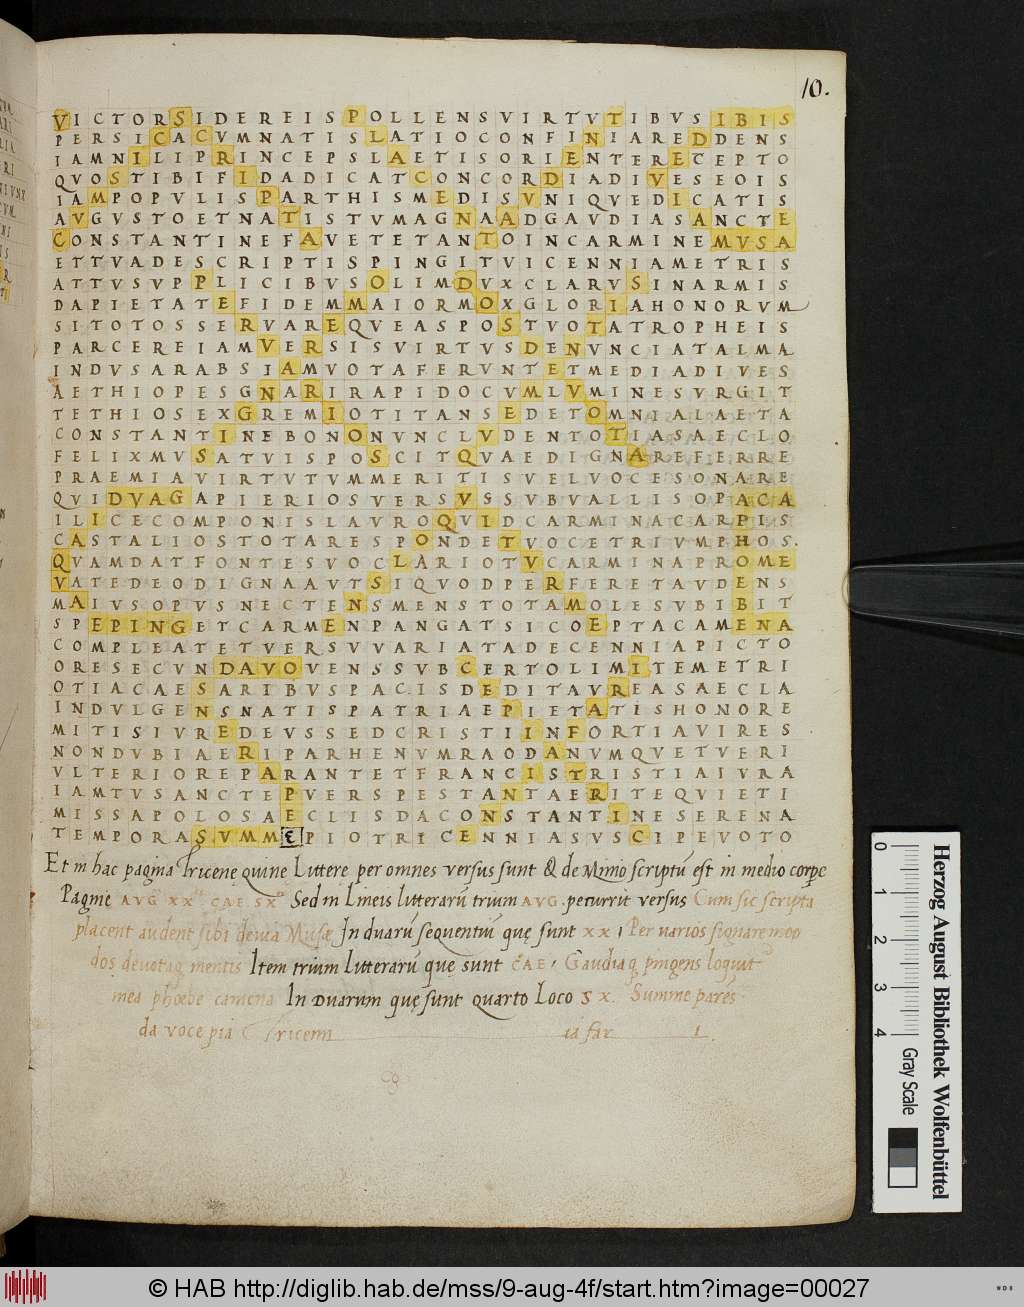 10.
VICTORSIDEREISPOLLENSVIRTVTIBVSIBIS
PERSICACVMNATISLATIOCONFINIAREDDENS
IAMNILIPRINCEPSLAETISORIENTERECEPTO
QVOSTIBIFIDADICATCONCORDIADIVESEOIS
IAMPOPVLISPARTHISMEDISVNIQVEDICATIS
AVGVSTOETNATISTVMAGNAADGAVDIASANCTE
CONSTANTINEFAVETETANTOINCARMINEMVSA
ETTVADESCRIPTISPINGITVICENNIAMETRIS
ATTVSVPPLICIBVSOLIMDVXCLARVSINARMIS
DAPIETATEFIDEMMAIORMOXGLORIAHONORVM
SITOTOSSERVAREQVEASPOSTVOTATROPHEIS
PARCEREIAMVERSISVIRTVSDENVNCIATALMA
INDVSARABSIAMVOTAFERVNTETMEDIADIVES
AETHIOPESGNARIRAPIDOCVMLVMINESVRGIT
TETHIOSEXGREMIOTITANSEDETOMNIALAETA
CONSTANTINEBONONVNCLVDENTOTIASAECLO
FELIXMVSATVISPOSCITQVAEDIGNAREFERRE
PRAEMIAVIRTVTVMMERITISVELVOCESONARE
QVIDVAGAPIERIOSVERSVSSVBVALLISOPACA
ILICECOMPONISLAVROQVIDCARMINACARPIS
CASTALIOSTOTARESPONDETVOCETRIVMPHOS.
QVAMDATFONTESVOCLARIOTVCARMINAPROME
VATEDEODIGNAAVTSIQVODPERFERETAVDENS
MAIVSOPVSNECTENSMENSTOTAMOLESVBIBIT
SPEPINGETCARMENPANGATSICOEPTACAMENA
COMPLEATETVERSVVARIATADECENNIAPICTO
ORESECVNDAVOVENSSVBCERTOLIMITEMETRI
OTIACAESARIBVSPACISDEDITAVREASAECLA
INDVLGENSNATISPATRIAEPIETATISHONORE
MITISIVREDEVSSEDCRISTIINFORTIAVIRES
NONDVBIAERIPARHENVMRAODANVMQVETVERI
VLTERIOREPARANTETFRANCISTRISTIAIVRA
IAMTVSANCTEPVERSPESTANTAERITEQVIETI
MISSAPOLOSAECLISDACONSTANTINESERENA
TEMPORASVMMEPIOTRICENNIASVSCIPEVOTO
Et in hac pagina Tricene quine Littere per omnes versus sunt & de Minio scriptu est in medio corpe
Pagine AVG XX CAE. SX Sed in Lineis litteraru trium AVG. percurrit versus Cum sic scripta
placent audent sibi devia Musæ In duaru sequentiu que sunt XX, Per varios signare mo
dos devotaq mentis Item trium litteraru que sunt CAE, Gaudiaq pingens loquit
mea phoebe camena In Duarum que sunt quarto Loco S X. Summe pares
da voce pia Tricenn ia far
0 1 2 3 4
Gray Scale
Herzog August Bibliothek Wolfenbüttel
© HAB http://diglib.hab.de/mss/9-aug-4f/start.htm?image=00027